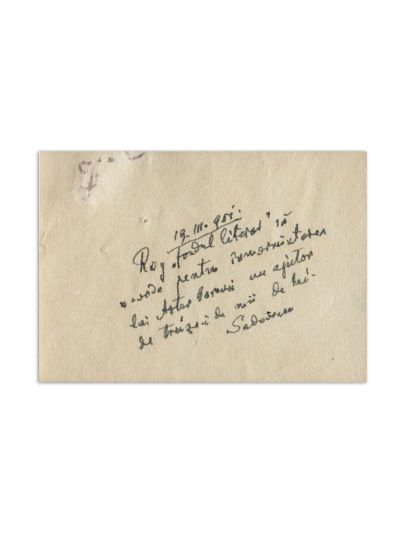 19.III.951.
Rog „Fondul literar" să
acorde pentru înmormântarea
lui Artur Gorovei un ajutor
de treizeci de mii de lei.
Sadoveanu